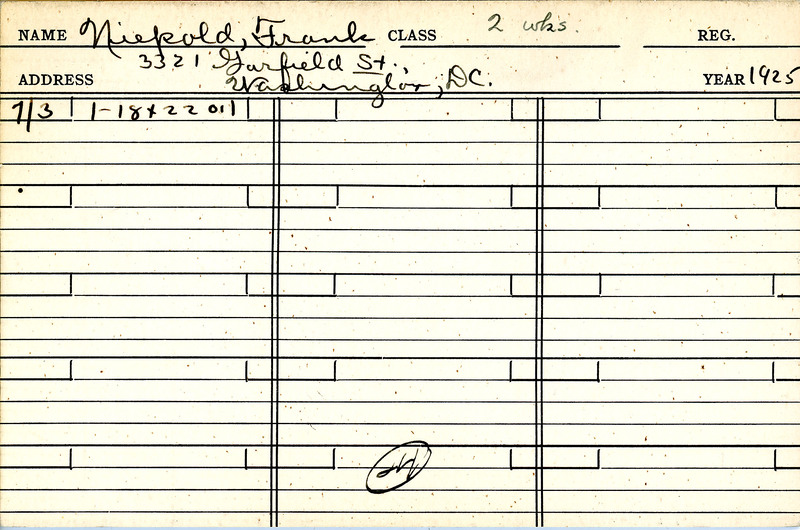 NAME Niepold, Frank CLASS 2 wks. REG.
3321 Garfield St.
ADDRESS Washington, DC. YEAR 1925
7/3 1-18x22 oil